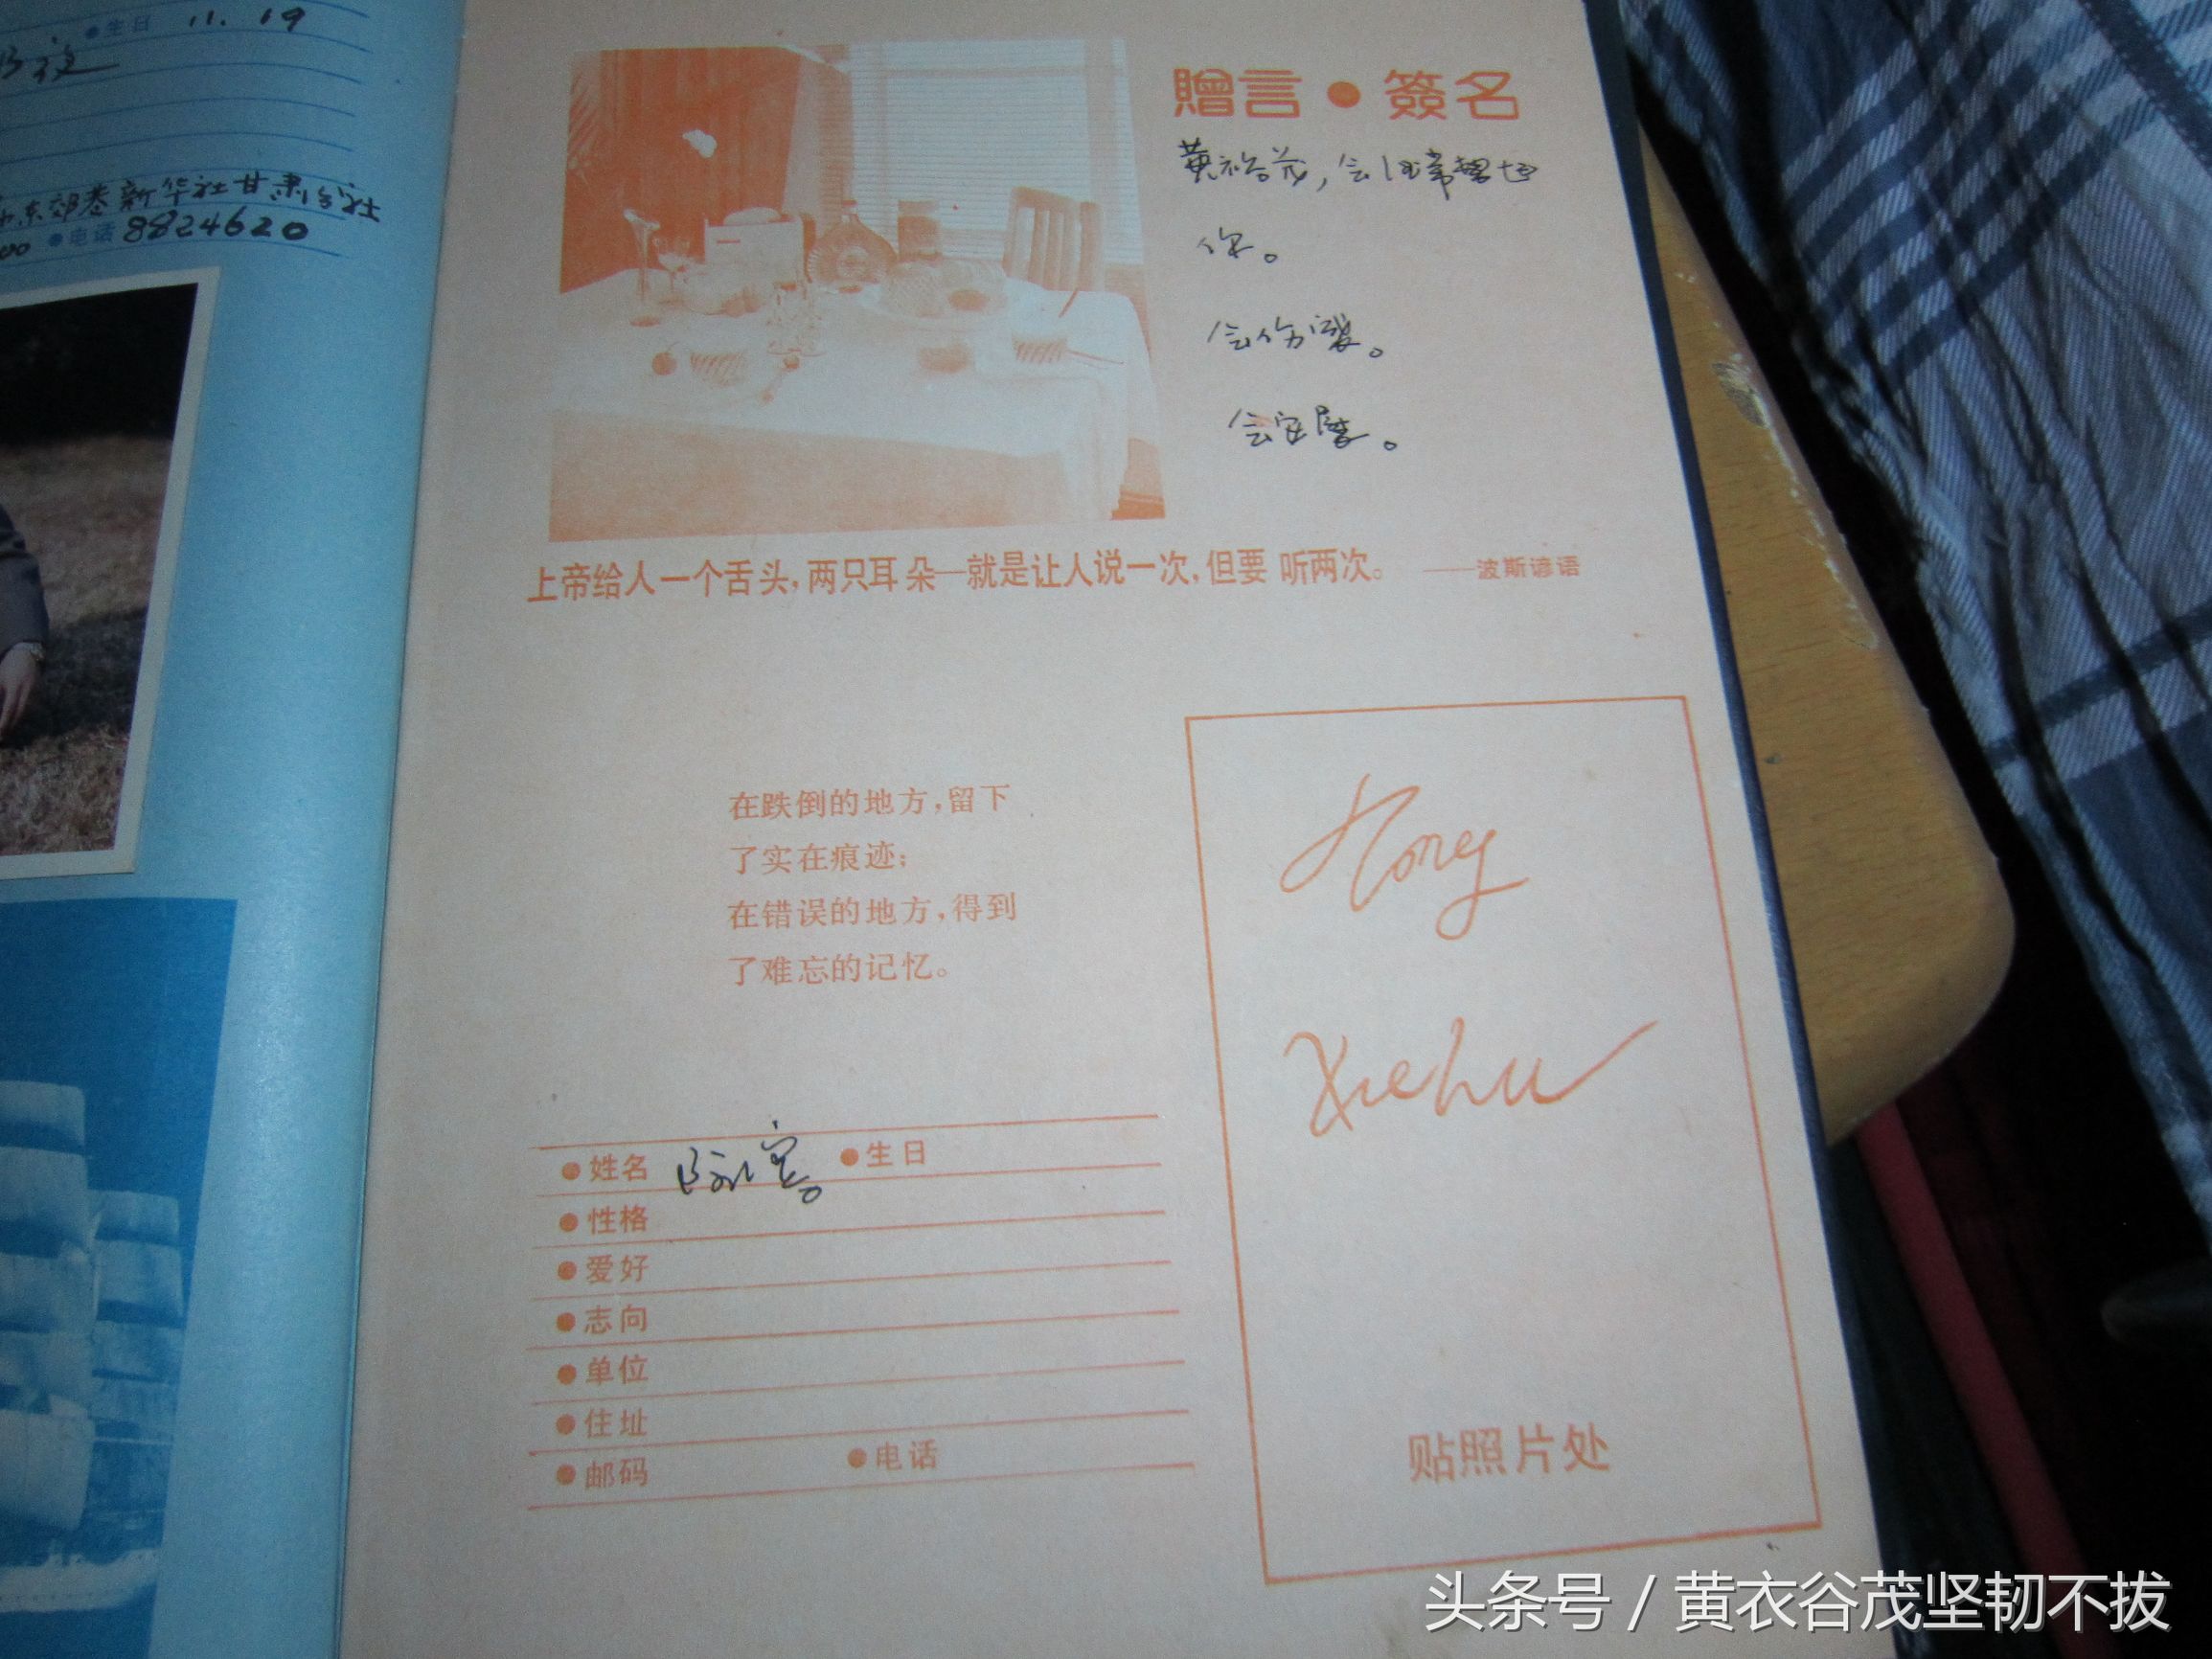 生日 11.19
东郊巷新华社甘肃分社
电话 8824620
贈言●簽名
黄裕茂,会经常想起
你。
会伤感。
会安慰。
上帝给人一个舌头,两只耳朵—就是让人说一次,但要 听两次。 ——波斯谚语
在跌倒的地方,留下
了实在痕迹;
在错误的地方,得到
了难忘的记忆。
Hong
Xuehu
●姓名 ●生日
●性格
●爱好
●志向
●单位
●住址
●邮码 ●电话
贴照片处
头条号 / 黄衣谷茂坚韧不拔